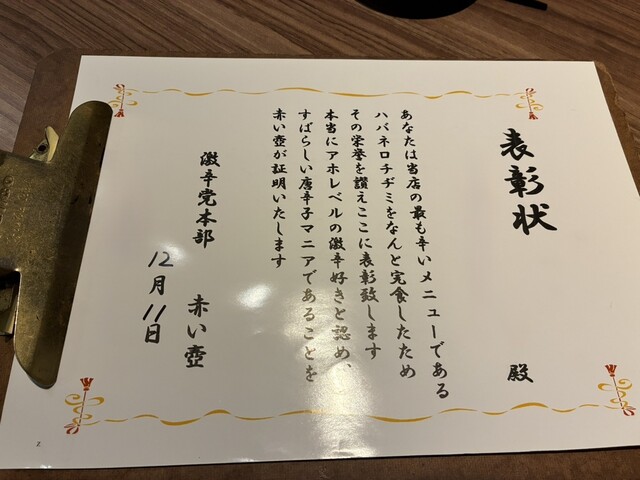 表彰状
殿
あなたは当店の最も辛いメニューである
ハバネロチヂミをなんと完食したため
その栄誉を讃えここに表彰致します
本当にアホレベルの激辛好きと認め、
すばらしい唐辛子マニアであることを
赤い壺が証明いたします
激辛党本部 赤い壺
12月11日